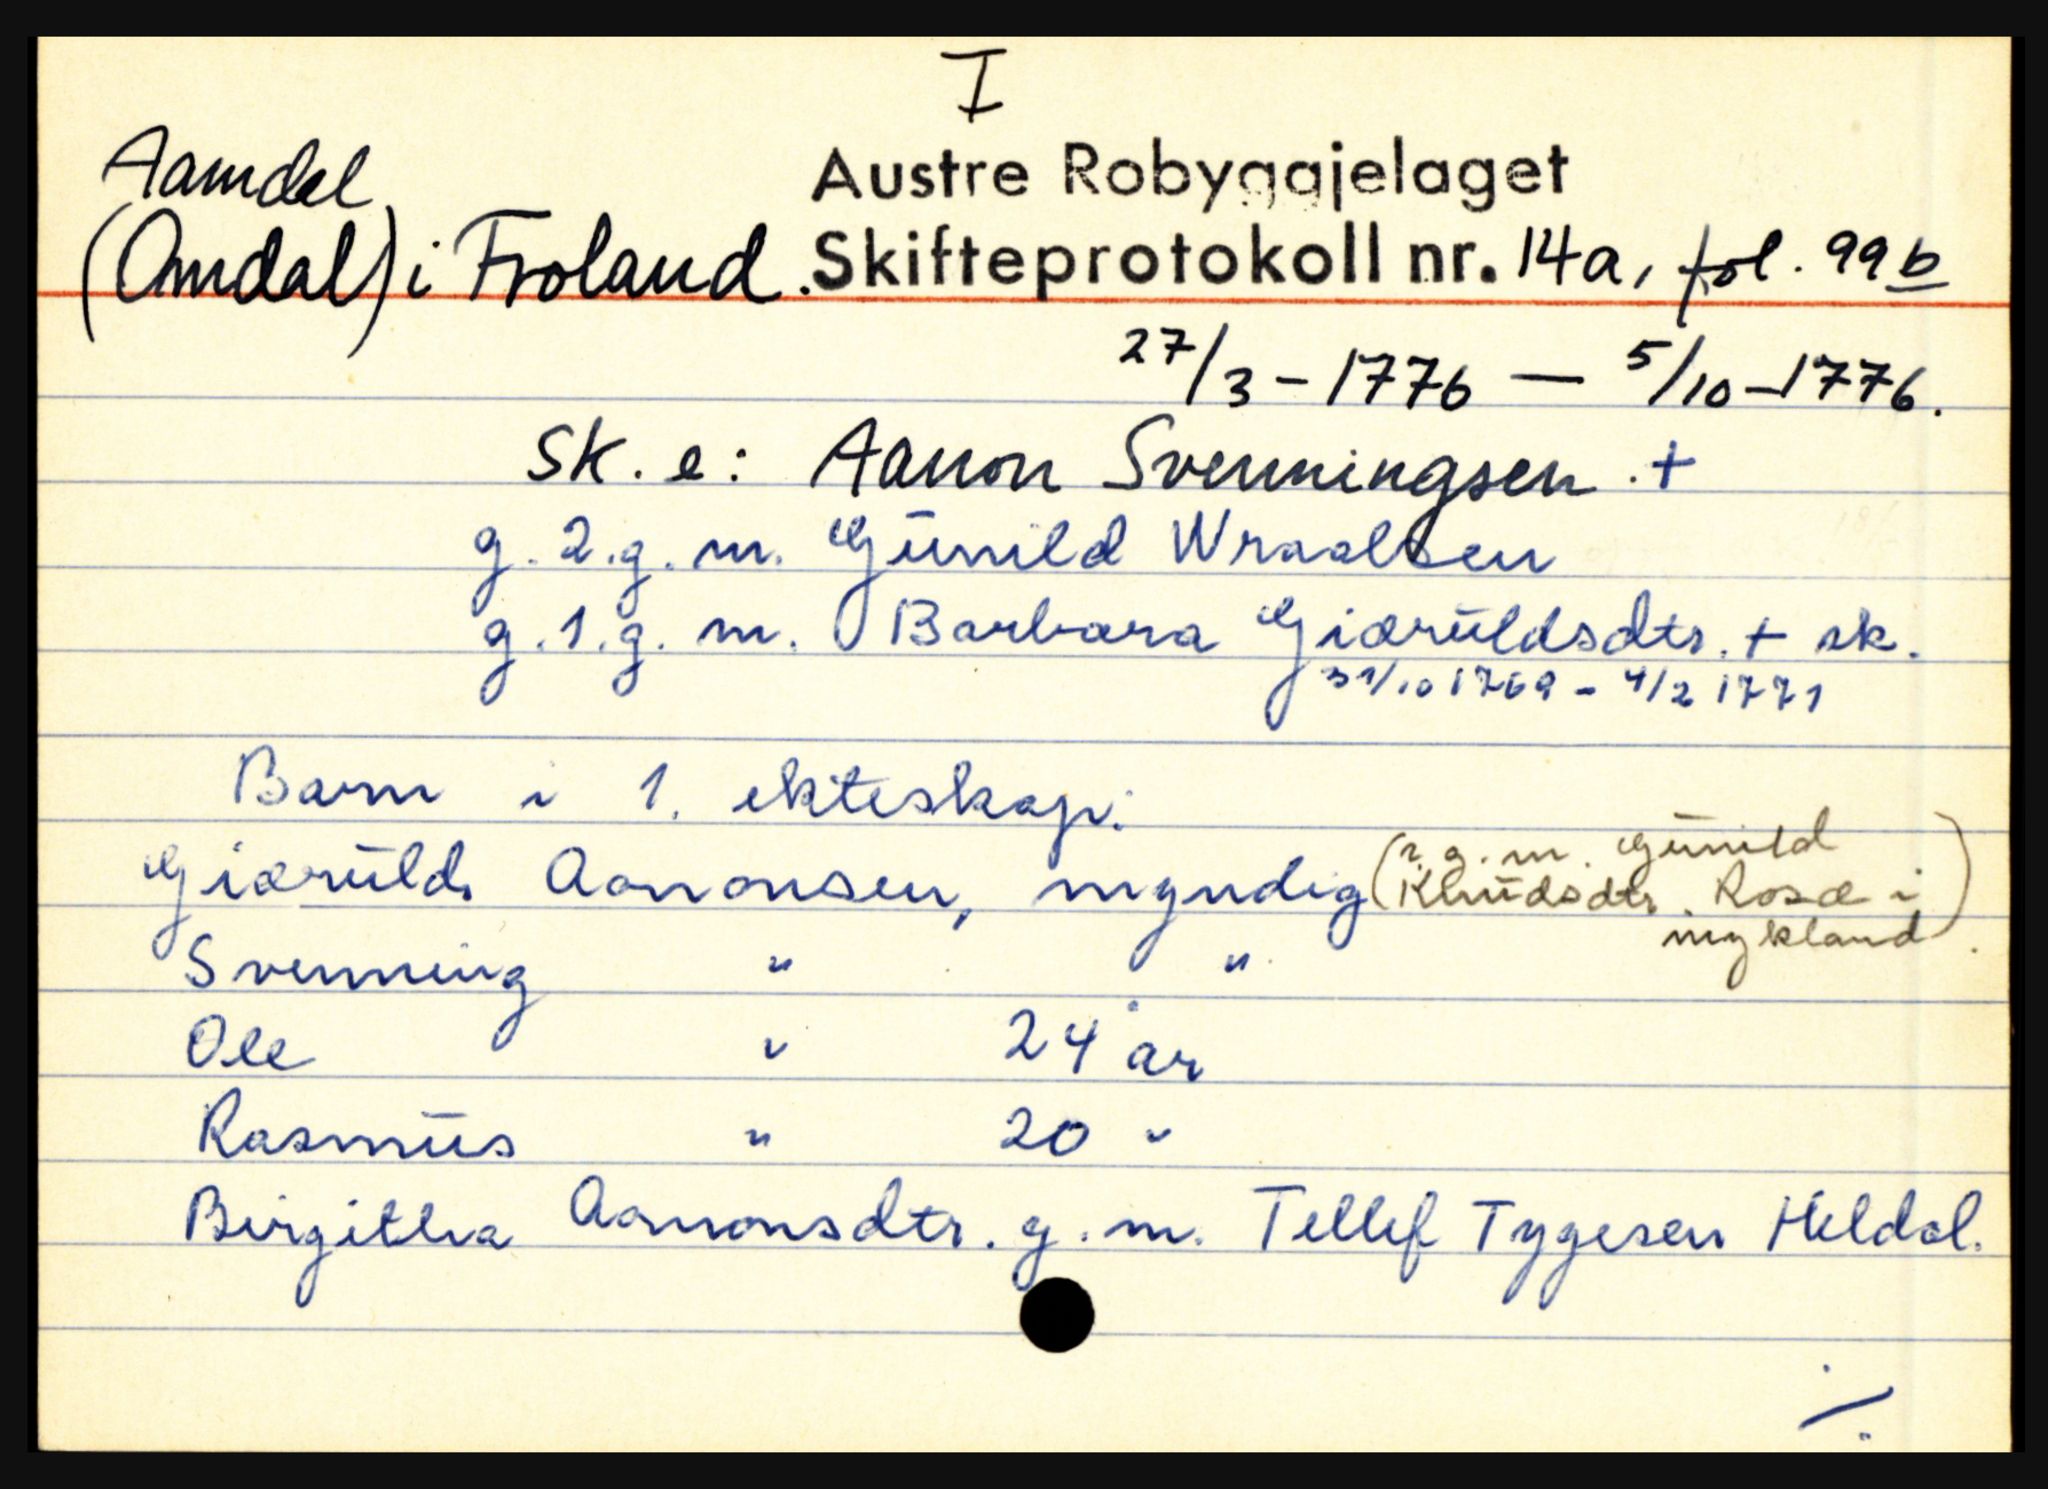 I
Aamdal
(Omdal) i Froland.
Austre Robyggjelaget
Skifteprotokoll nr. 14a, fol. 99b
27/3 - 1776 — 5/10 - 1776.
Sk. e: Aanon Svenningsen. +
g. 2. g. m. Gŭnild Wraalsen
g. 1. g. m. Barbara Giærŭldsdtr. + sk.
31/10 1769 - 4/2 1771
Barn i 1. ekteskap:
Giærŭld Aanonsen, myndig
(g. m. Gŭnild
Knŭdsdtr. Rosæ i
mykland)
Svenning " "
Ole " 24 år
Rasmŭs " 20 "
Birgitha Aanonsdtr. g. m. Tellef Tygesen Heldal.
./.